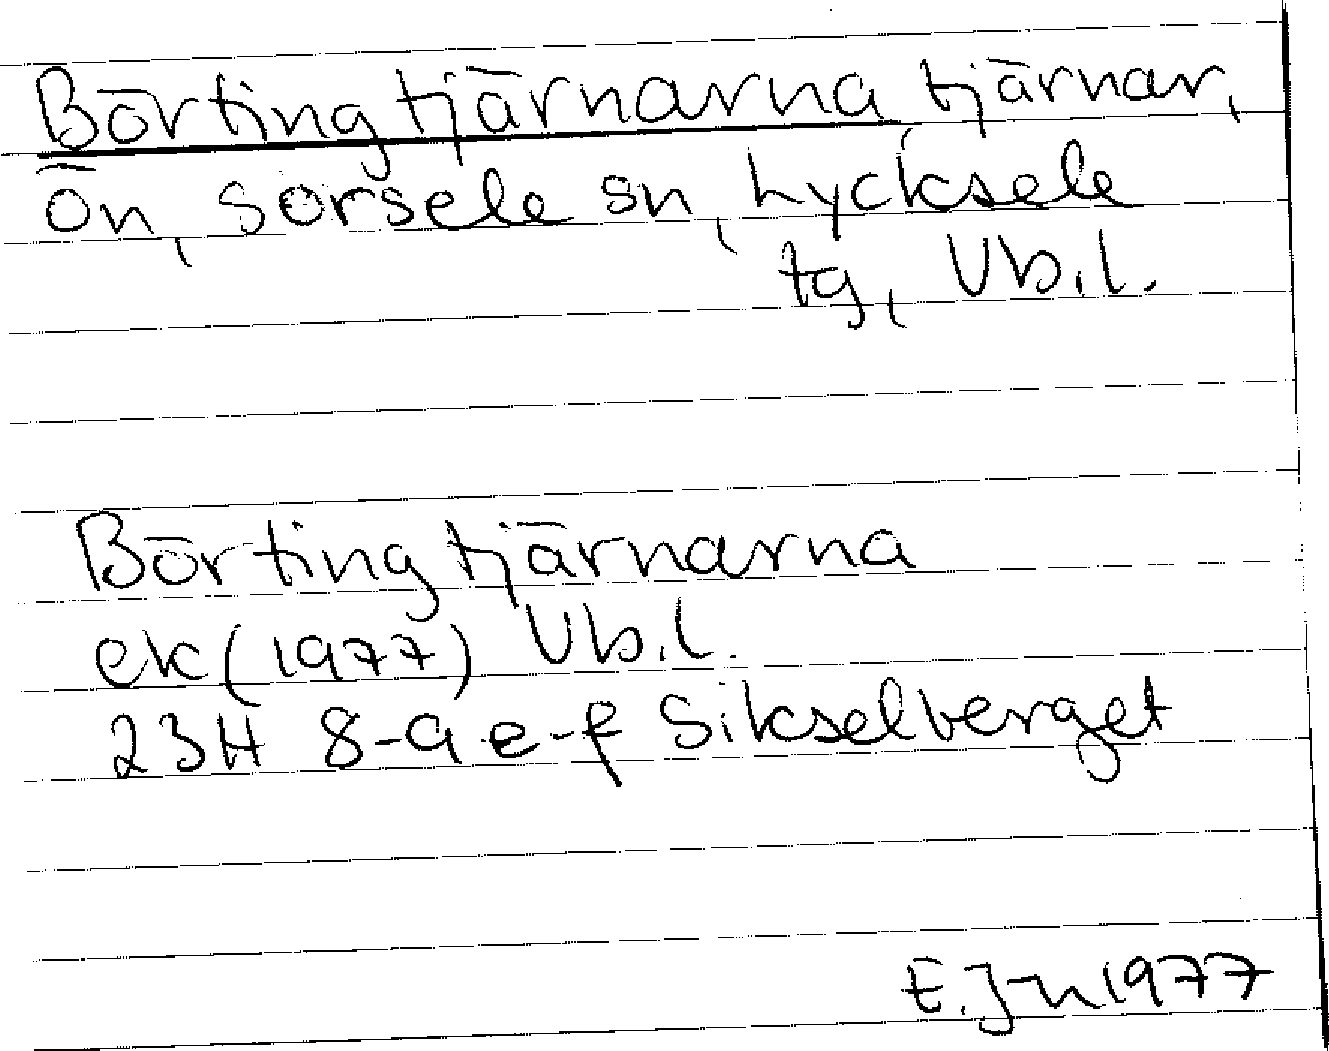 Börtingtjärnarna tjärnar,
Ön, Sorsele sn, Lycksele
tg, Vb.l.
Börtingtjärnarna
ek (1977) Vb.l.
23H 8-9 e-f Sikselberget
E. J-n 1977